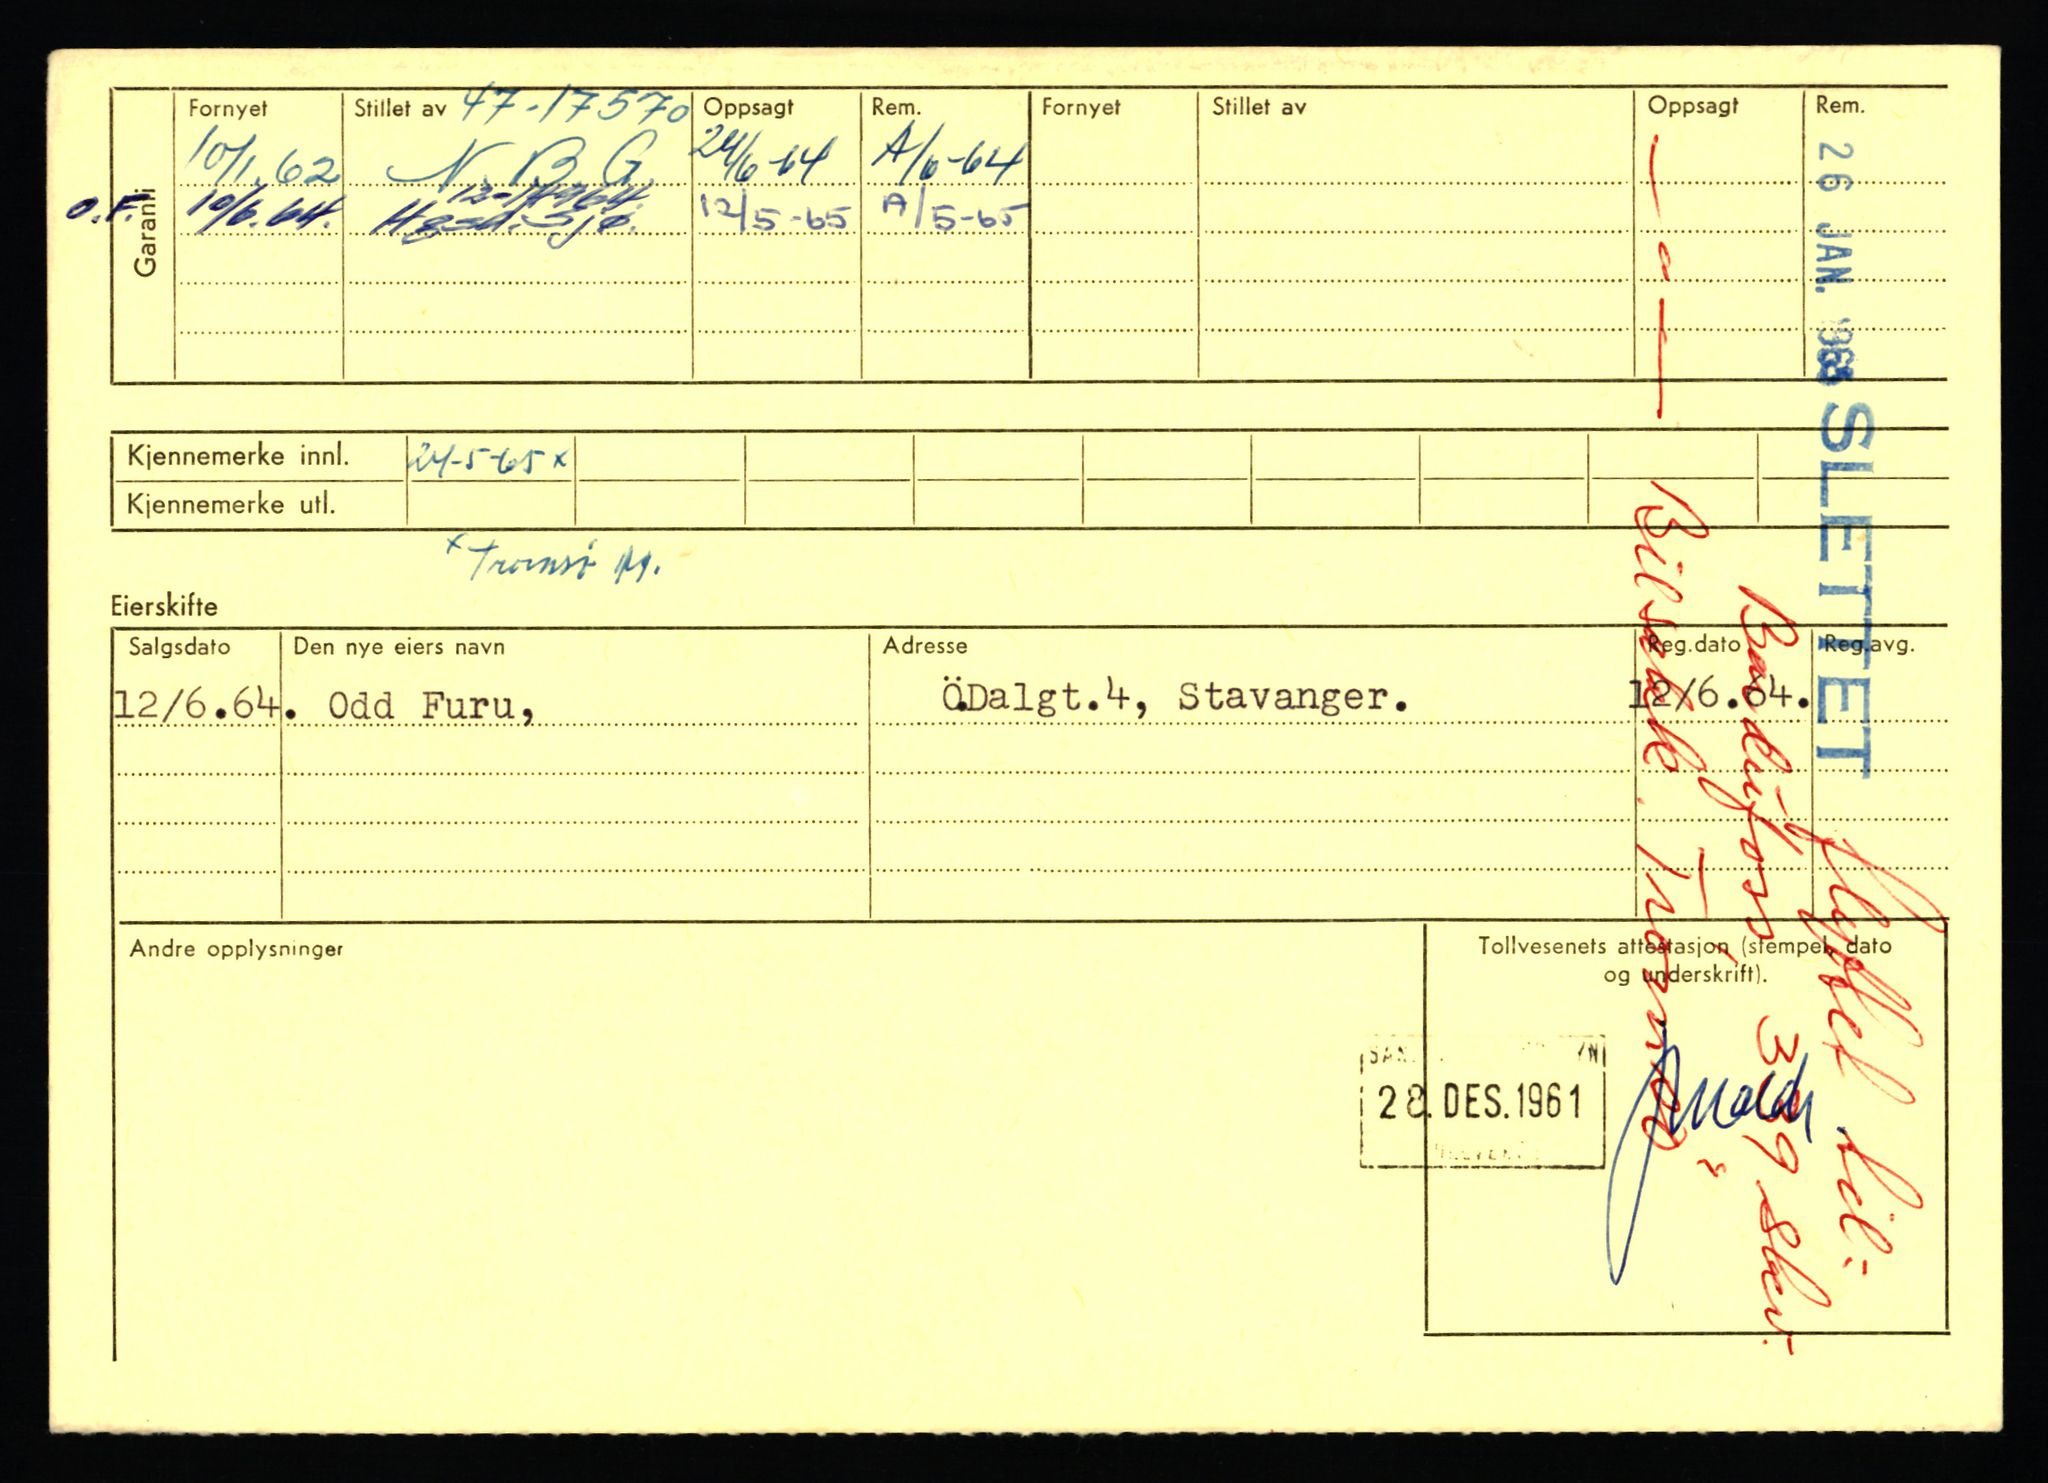 Garanti
Fornyet Stillet av 47-17570 Oppsagt Rem. Fornyet Stillet av Oppsagt Rem.
10/1.62 N.B.G. 24/6-64 A/6-64
O.F. 10/6.64. Hgsd. Sjø. 12/5-65 A/5-65
Kjennemerke innl. 24-5-65 x
Kjennemerke utl.
x Tromsø
Eierskifte
Salgsdato Den nye eiers navn Adresse Reg.dato Reg.avg.
12/6.64. Odd Furu, Ö.Dalgt.4, Stavanger. 12/6.64.
Andre opplysninger
Tollvesenets attestasjon (stempel, dato
og underskrift).
28. DES. 1961
26 JAN. 1968 SLETTET
flyttet til:
Bardufoss 339 Skv.
Bilsakk. Tromsø"
— " —